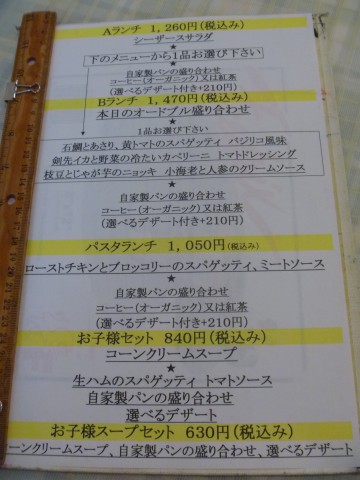 Aランチ 1,260円(税込み)
シーザースサラダ
★
下のメニューから1品お選び下さい
★
自家製パンの盛り合わせ
コーヒー(オーガニック)又は紅茶
(選べるデザート付き+210円)
Bランチ 1,470円(税込み)
本日のオードブル盛り合わせ
★
1品お選び下さい
石鯛とあさり、黄トマトのスパゲッティ バジリコ風味
剣先イカと野菜の冷たいカペリーニ トマトドレッシング
枝豆とじゃが芋のニョッキ 小海老と人参のクリームソース
★
自家製パンの盛り合わせ
コーヒー(オーガニック)又は紅茶
(選べるデザート付き+210円)
パスタランチ 1,050円(税込み)
ローストチキンとブロッコリーのスパゲッティ、ミートソース
★
自家製パンの盛り合わせ
コーヒー(オーガニック)又は紅茶
(選べるデザート付き+210円)
お子様セット 840円(税込み)
コーンクリームスープ
★
生ハムのスパゲッティ トマトソース
自家製パンの盛り合わせ
選べるデザート
お子様スープセット 630円(税込み)
コーンクリームスープ、自家製パンの盛り合わせ、選べるデザート